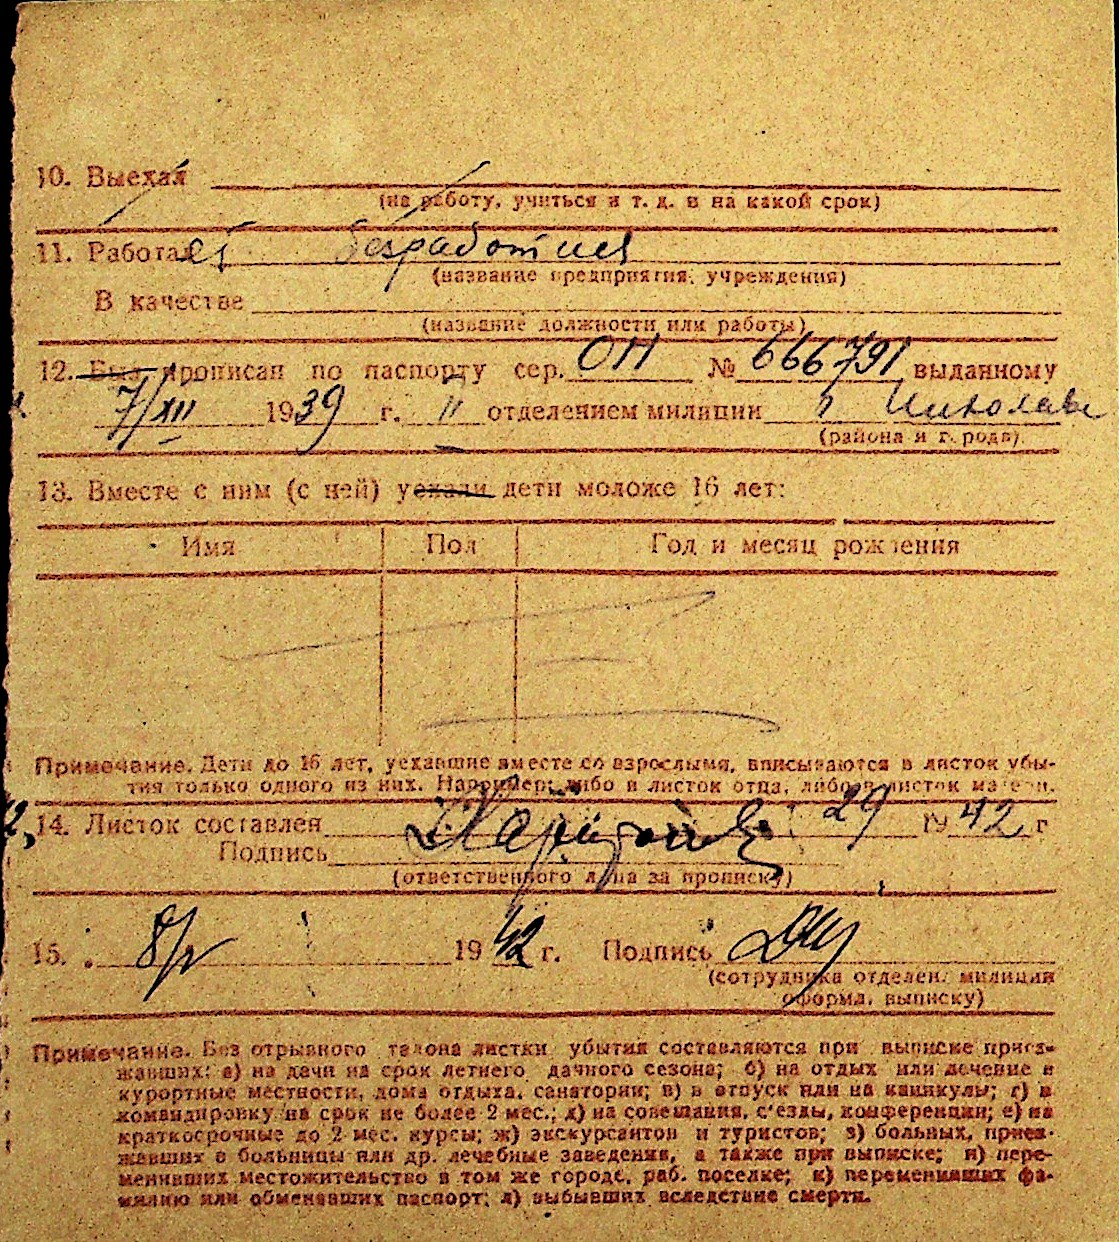 10. Выехал
(на работу, учиться и т. д. и на какой срок)
11. Работает безработный
(название предприятия, учреждения)
В качестве
(название должности или работы)
12. Был прописан по паспорту сер. ОП № 666791 выданному
7/XII 1939 г. II отделением милиции г Николаев
(района и г. рода)
13. Вместе с ним (с ней) уехали дети моложе 16 лет:
Имя Пол Год и месяц рождения
Примечание. Дети до 16 лет, уехавшие вместе со взрослыми, вписываются в листок убы-
тия только одного из них. Например: либо в листок отца, либо в листок матери.
14. Листок составлен 29 1942 г
Подпись
(ответственного лица за прописку)
15. 1942 г. Подпись
(сотрудника отделен. милиции
оформл. выписку)
Примечание. Без отрывного талона листки убытия составляются при выписке приез-
жавших: а) на дачи на срок летнего дачного сезона; б) на отдых или лечение в
курортные местности, дома отдыха, санатории; в) в отпуск или на каникулы; г) в
командировку на срок не более 2 мес.; д) на совещания, с'езды, конференции; е) на
краткосрочные до 2 мес. курсы; ж) экскурсантов и туристов; з) больных, приез-
жавших в больницы или др. лечебные заведения, а также при выписке; и) пере-
менивших местожительство в том же городе, раб. поселке; к) переменивших фа-
милию или обменявших паспорт; л) выбывших вследствие смерти.